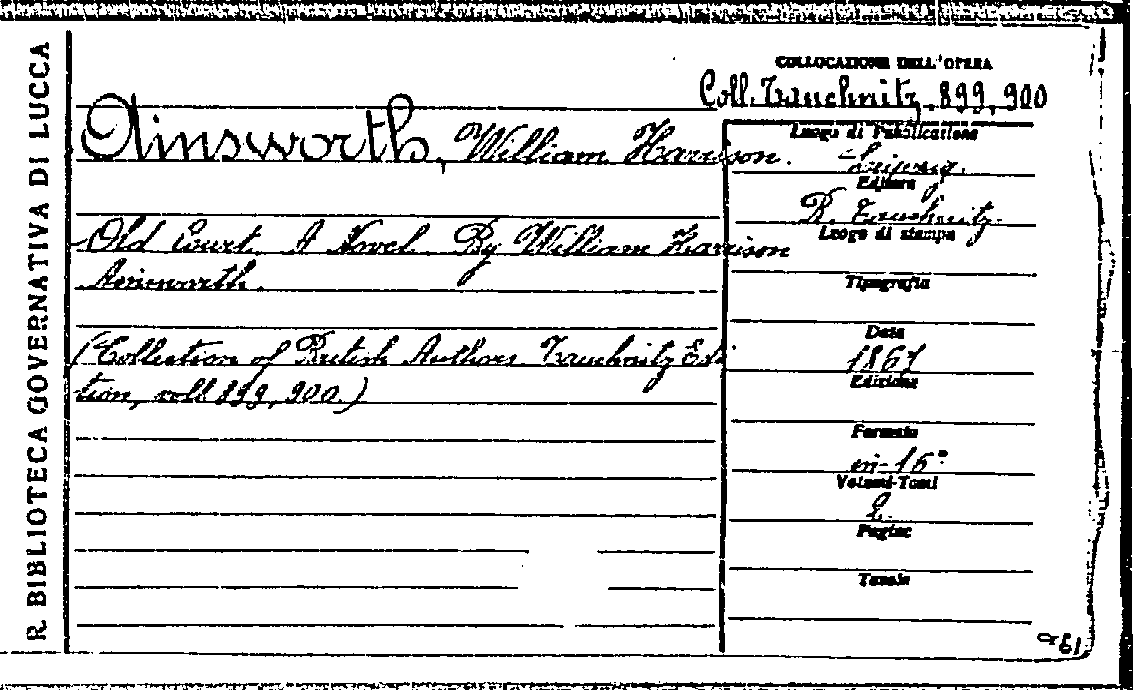 R. BIBLIOTECA GOVERNATIVA DI LUCCA
COLLOCAZIONE DELL'OPERA
Coll. Tauchnitz, 899, 900
Ainsworth, William Harrison.
Old Court. A Novel. By William Harrison
Ainsworth.
(Collection of British Authors Tauchnitz Edi
tion, voll 899, 900.)
Luogo di Pubblicazione
Leipzig.
Editore
B. Tauchnitz.
Luogo di stampa
Tipografia
Data
1867
Edizione
Formato
in-16°
Volumi-Tomi
2.
Pagine
Tavole